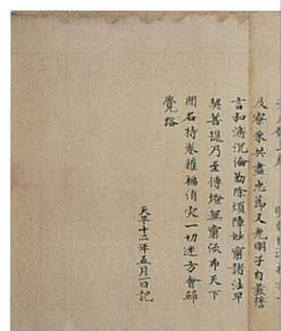 及寮采共盡忠節又光明子自發誓
言弘濟沉淪勤除煩障妙窮諸法早
契菩提乃至傳燈無窮流布天下
聞名持卷獲福消災一切迷方會歸
覺路
天平十二年五月一日記